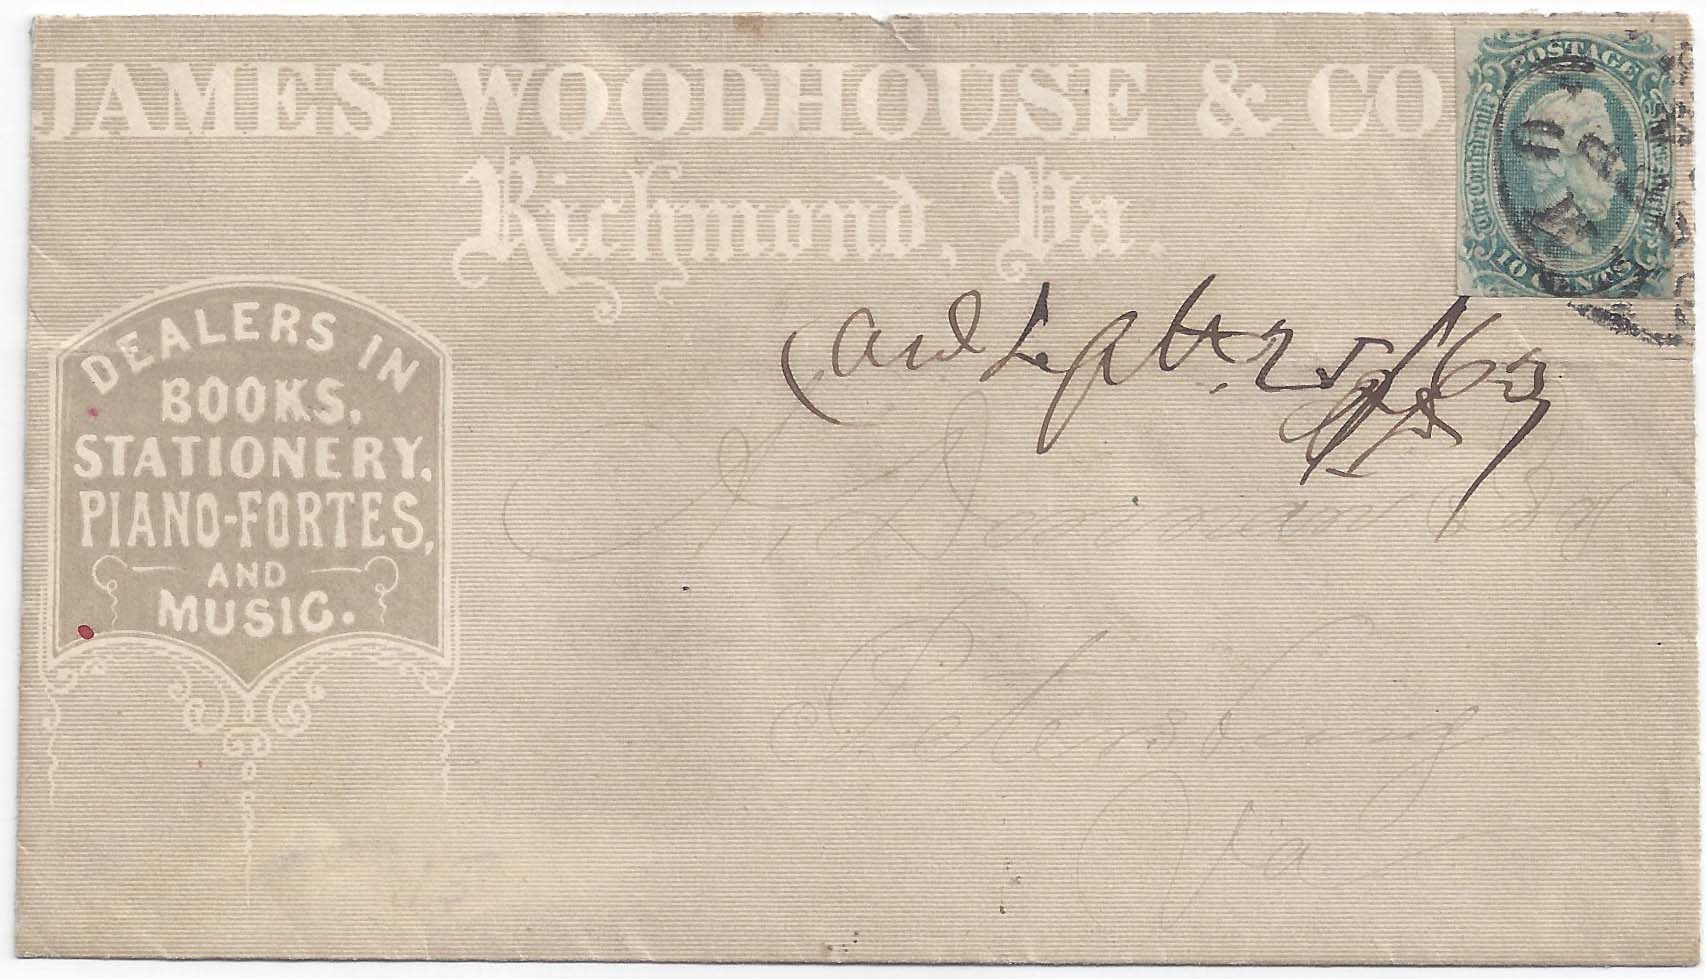 JAMES WOODHOUSE & CO
Richmond, Va.
POSTAGE
The Confederate
States of America
10 CENTS
DEALERS IN
BOOKS,
STATIONERY,
PIANO-FORTES,
AND
MUSIC.
Septbr. 25/63
Petersburg
Va